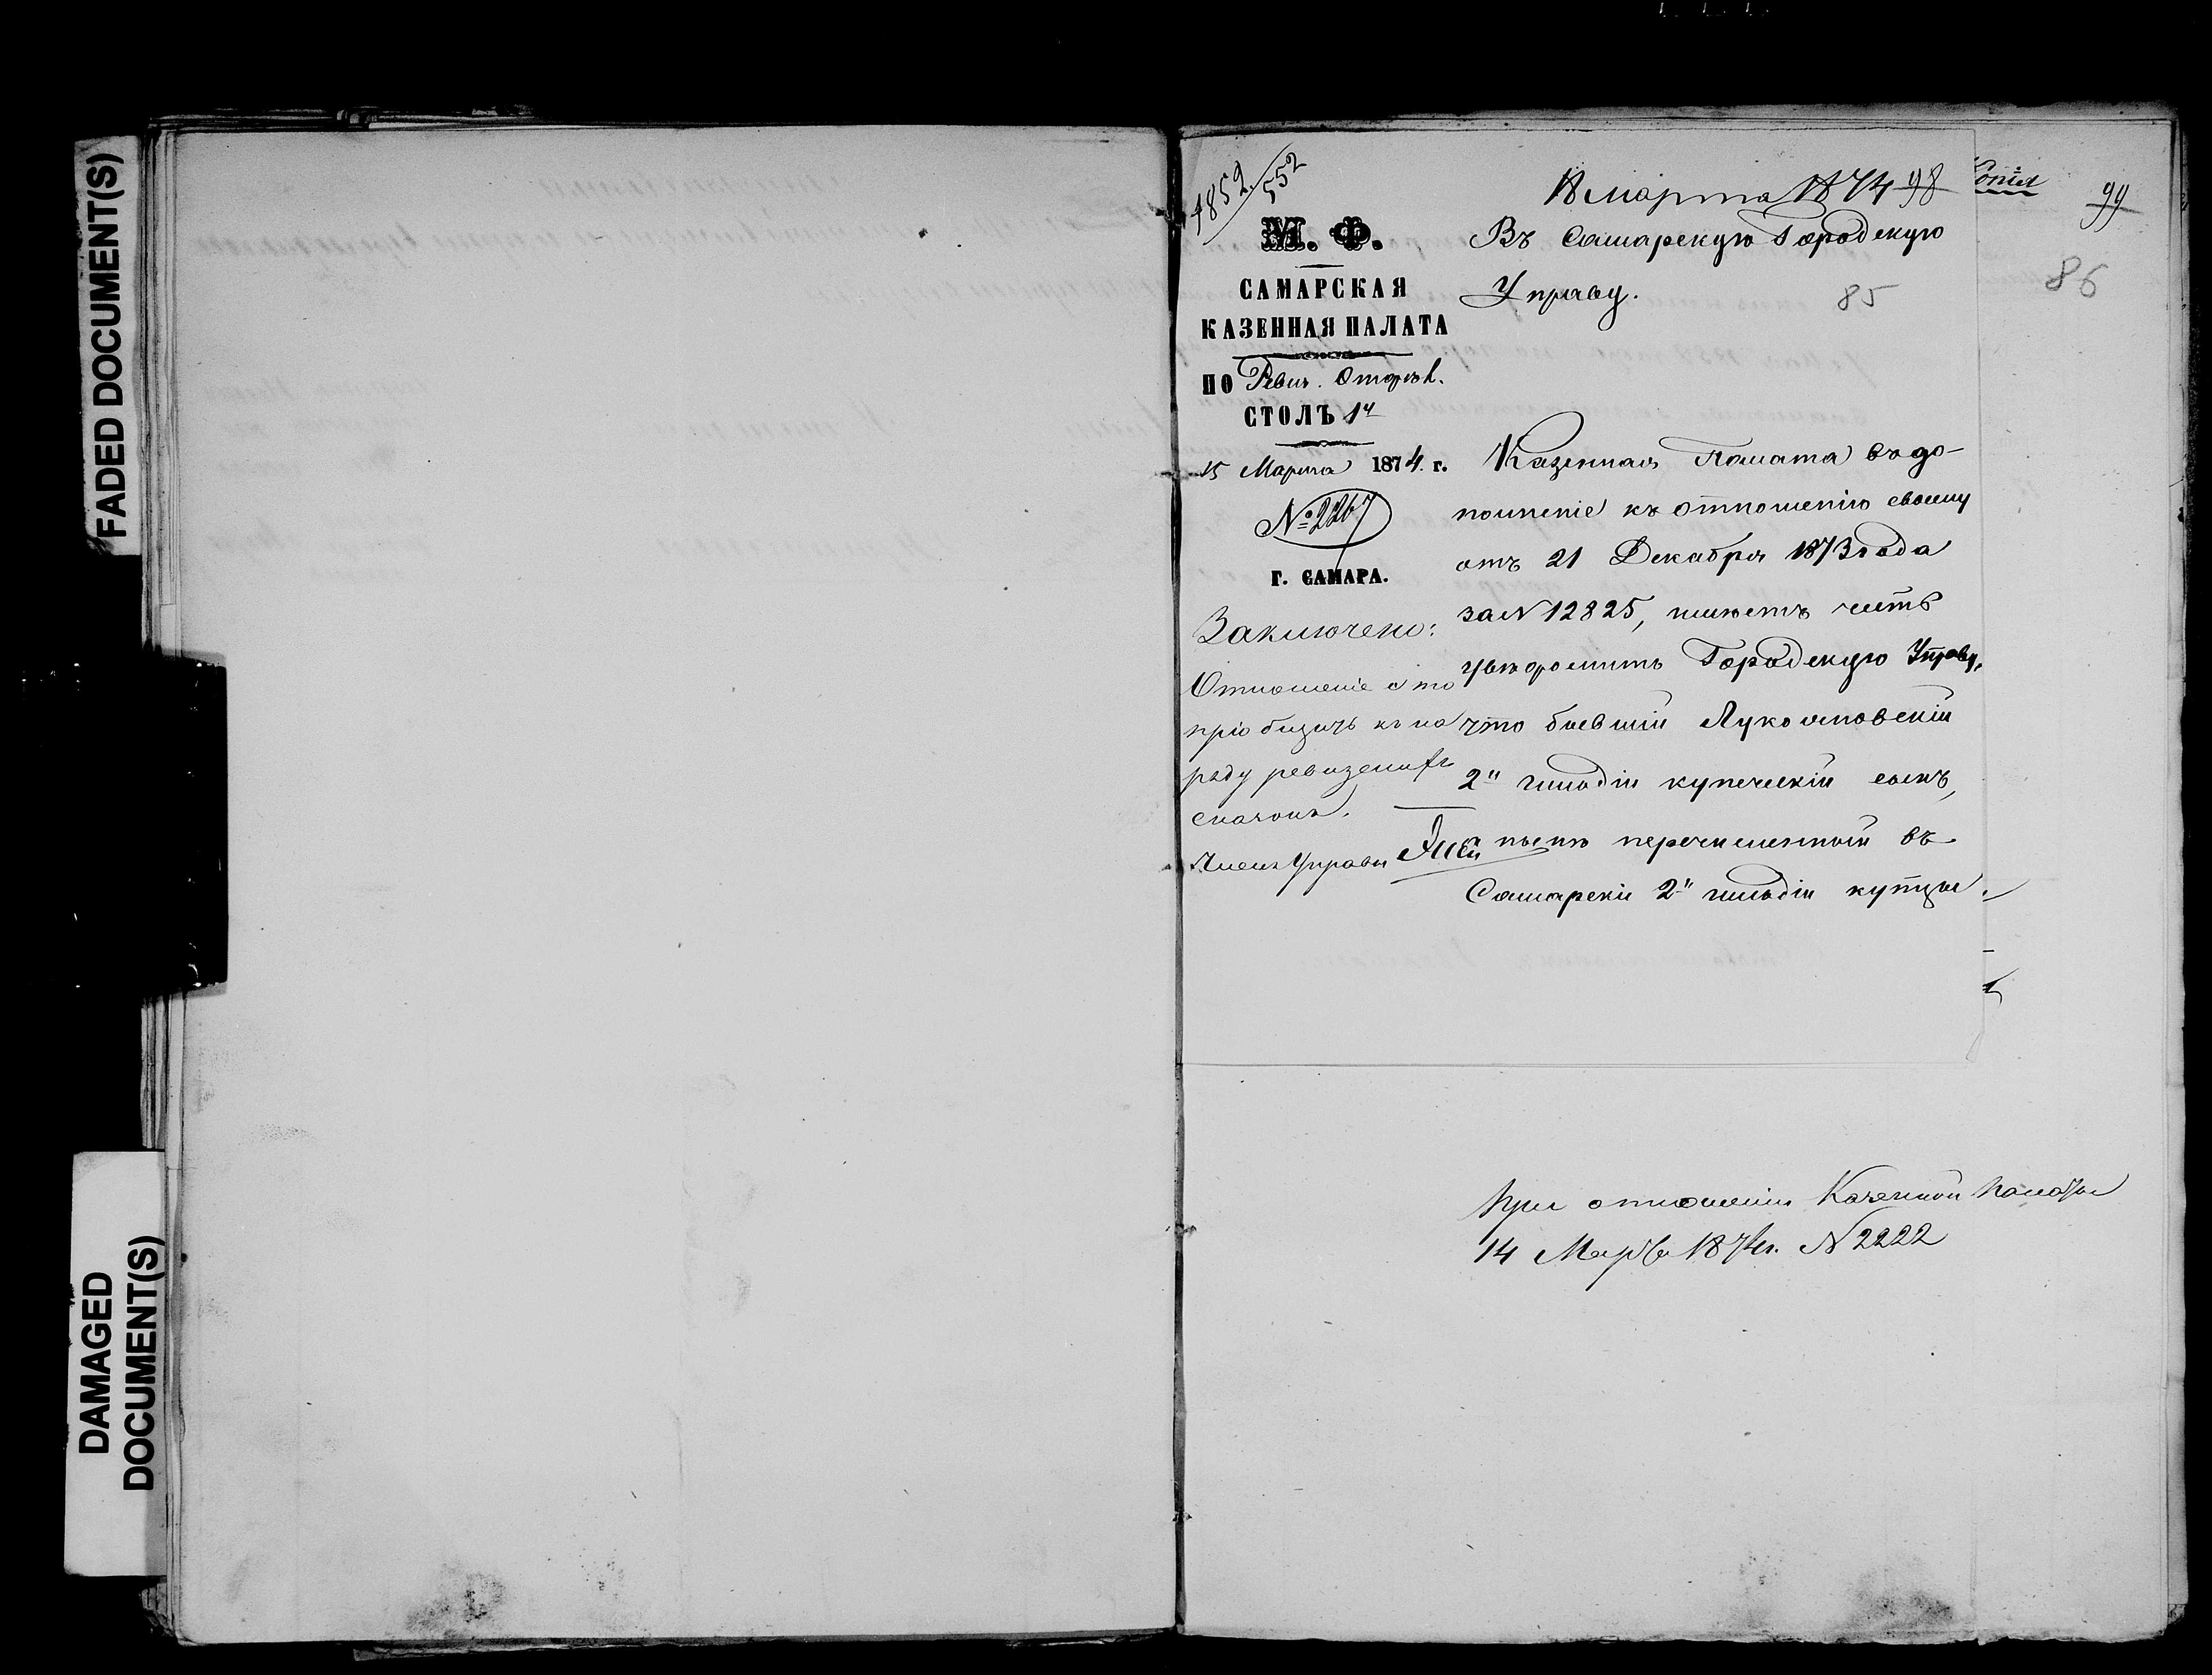 FADED DOCUMENT(S)
DAMAGED
DOCUMENT(S)
4852/552
М. Ф.
САМАРСКАЯ
КАЗЕННАЯ ПАЛАТА
ПО Ревиз. Отдѣл.
СТОЛЪ 1й
15 Марта 1874. г.
№ 2267
Г. САМАРА.
Заключено:
Отношеніе это
пріобщить къ на
ряду ревизскихъ
сказокъ.
Членъ Управы
18 марта 1874 98
Въ Самарскую Городскую
Управу.
85
Казенная Палата въ до-
полненіе къ отношенію своему
отъ 21 Декабря 1873 года
за N 12825, имѣетъ честь
увѣдомить Городскую Управу,
что бывшій Лукояновскій
2й гильдіи купеческій сынъ,
нынѣ перечисленный въ
Самарскіе 2й гильдіи купцы
Копія
99
86
При отношеніи Казенной Палаты
14 Марта 1874 г. N 2222